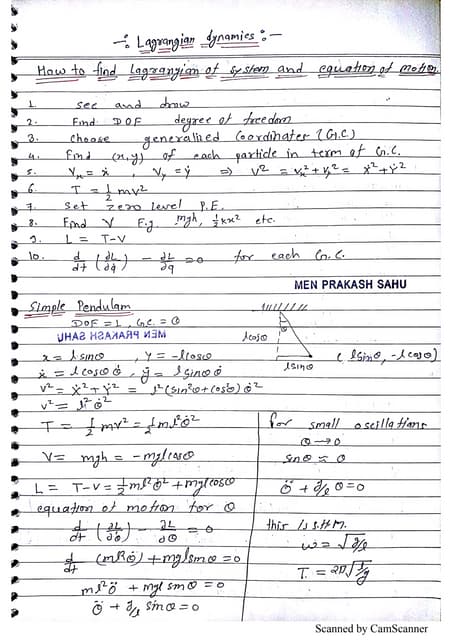 -: Lagrangian dynamics :-
How to find Lagrangian of system and equation of motion
1. see and draw
2. Find DOF degree of freedom
3. choose generallied Coordinates (G.C)
4. Find (x,y) of each particle in term of G.C.
5. Vx = ẋ , Vy = ẏ ⇒ V² = Vx² + Vy² = ẋ² + ẏ²
6. T = ½mv²
7. set zero level P.E.
8. Find V E.g. mgh, ½kx² etc.
9. L = T-V
10. d/dt (∂L/∂q̇) - ∂L/∂q = 0 for each G.C.
MEN PRAKASH SAHU
Simple Pendulam
DOF = 1, G.C. = θ
MEN PRAKASH SAHU
θ
lcosθ
lsinθ
(lsinθ, -lcosθ)
x = lsinθ , y = -lcosθ
ẋ = lcosθ θ̇, ẏ = lsinθ θ̇
v² = ẋ² + ẏ² = l²(sin²θ + cos²θ) θ̇²
v² = l²θ̇²
T = ½mv² = ½ml²θ̇²
V = mgh = -mglcosθ
L = T-V = ½ml²θ̇² + mglcosθ
equation of motion for θ
d/dt (∂L/∂θ̇) - ∂L/∂θ = 0
d/dt (ml²θ̇) + mglsinθ = 0
ml²θ̈ + mgl sinθ = 0
θ̈ + g/l sinθ = 0
for small oscillations
θ → 0
sinθ ≈ θ
θ̈ + g/l θ = 0
this is S.H.M.
ω = √g/l
T = 2π√l/g
Scanned by CamScanner